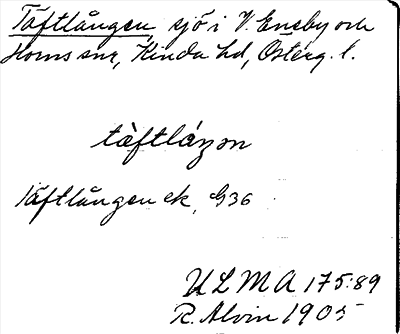 Täftlången, sjö i V. Eneby och
Horns snr, Kinda hd, Österg. l.
tæ̀ftláŋon
Täftlången ek, G36
ULMA 175:89
R. Alvin 1905